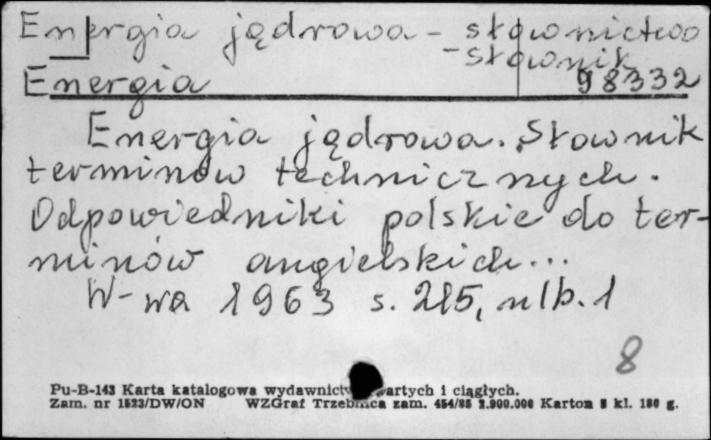 Energia jądrowa - słownictwo
- słownik
Energia 98332
Energia jądrowa. Słownik
terminów technicznych.
Odpowiedniki polskie do ter-
minów angielskich...
W-wa 1963 s. 215, nlb. 1
8
Pu-B-143 Karta katalogowa wydawnictw zwartych i ciągłych.
Zam. nr 1523/DW/ON WZGraf Trzebnica zam. 454/85 2.900.000 Karton kl. 180 g.